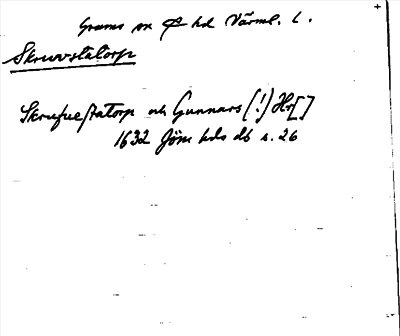 Grums sn [symbol] hd Värml. l.
Skruvstatorp
Skrufuestatorp och Gunnars (!) Hr[]
1632 Jöns hds db s. 26